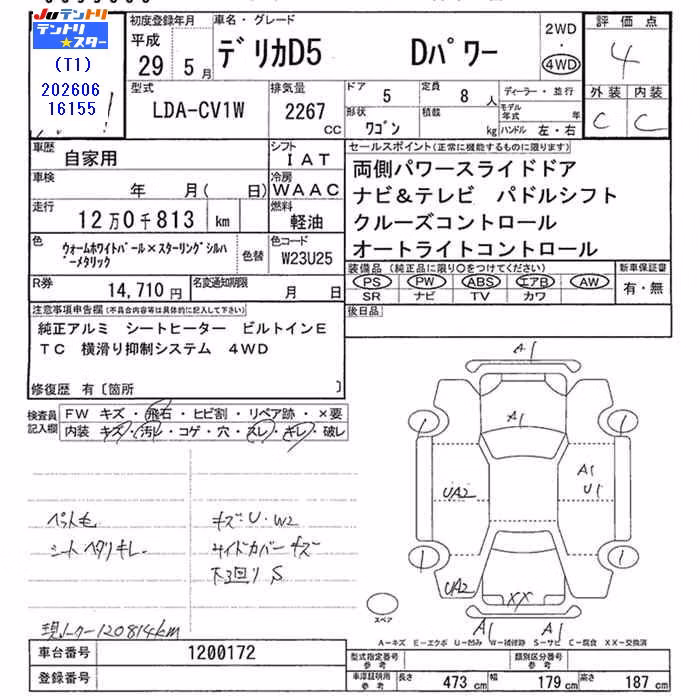 Juテントリ
テントリ
スター
(T1)
202606
16155
初度登録年月
平成
29 5月
車名・グレード
デリカD5 Dパワー
2WD
・
4WD
評価点
4
外装 内装
C C
型式
LDA-CV1W
排気量
2267
CC
ドア 5
定員 8人
形状 ワゴン
積載 kg
ディーラー・並行
モデル
年式 年
ハンドル 左・右
車歴 自家用
シフト IAT
車検 年 月( 日)
冷房 WAAC
走行 12万0千813 km
燃料 軽油
色 ウォームホワイトパール×スターリングシルバーメタリック
色替
色コード W23U25
R券 14,710円
名変通知期限 月 日
セールスポイント(正常に機能するものに限ります)
両側パワースライドドア
ナビ&テレビ パドルシフト
クルーズコントロール
オートライトコントロール
装備品(純正品に限り○をつけてください)
PS PW ABS エアB AW
SR ナビ TV カワ
新車保証書
有・無
後日品
注意事項申告欄(不具合内容等は具体的に記入して下さい)
純正アルミ シートヒーター ビルトインE
TC 横滑り抑制システム 4WD
修復歴 有〔箇所 〕
検査員
記入欄
FW キズ・飛石・ヒビ割・リペア跡・×要
内装 キズ・汚レ・コゲ・穴・スレ・キレ・破レ
ペット毛
シートヘタリキレ
キズ・U・W2
サイドカバーキズ
下廻り S
現メーター120814km
A1
A1
1
1
UA2
A1
U1
1
1
UA2
XX
A1
A1
スペア
A－キズ E－エクボ U－凹み W－補修跡 S－サビ C－腐食 XX－交換済
車台番号 1200172
登録番号
型式指定番号
参考
類別区分番号
参考
車庫証明用
参考
長さ 473cm 幅 179cm 高さ 187cm